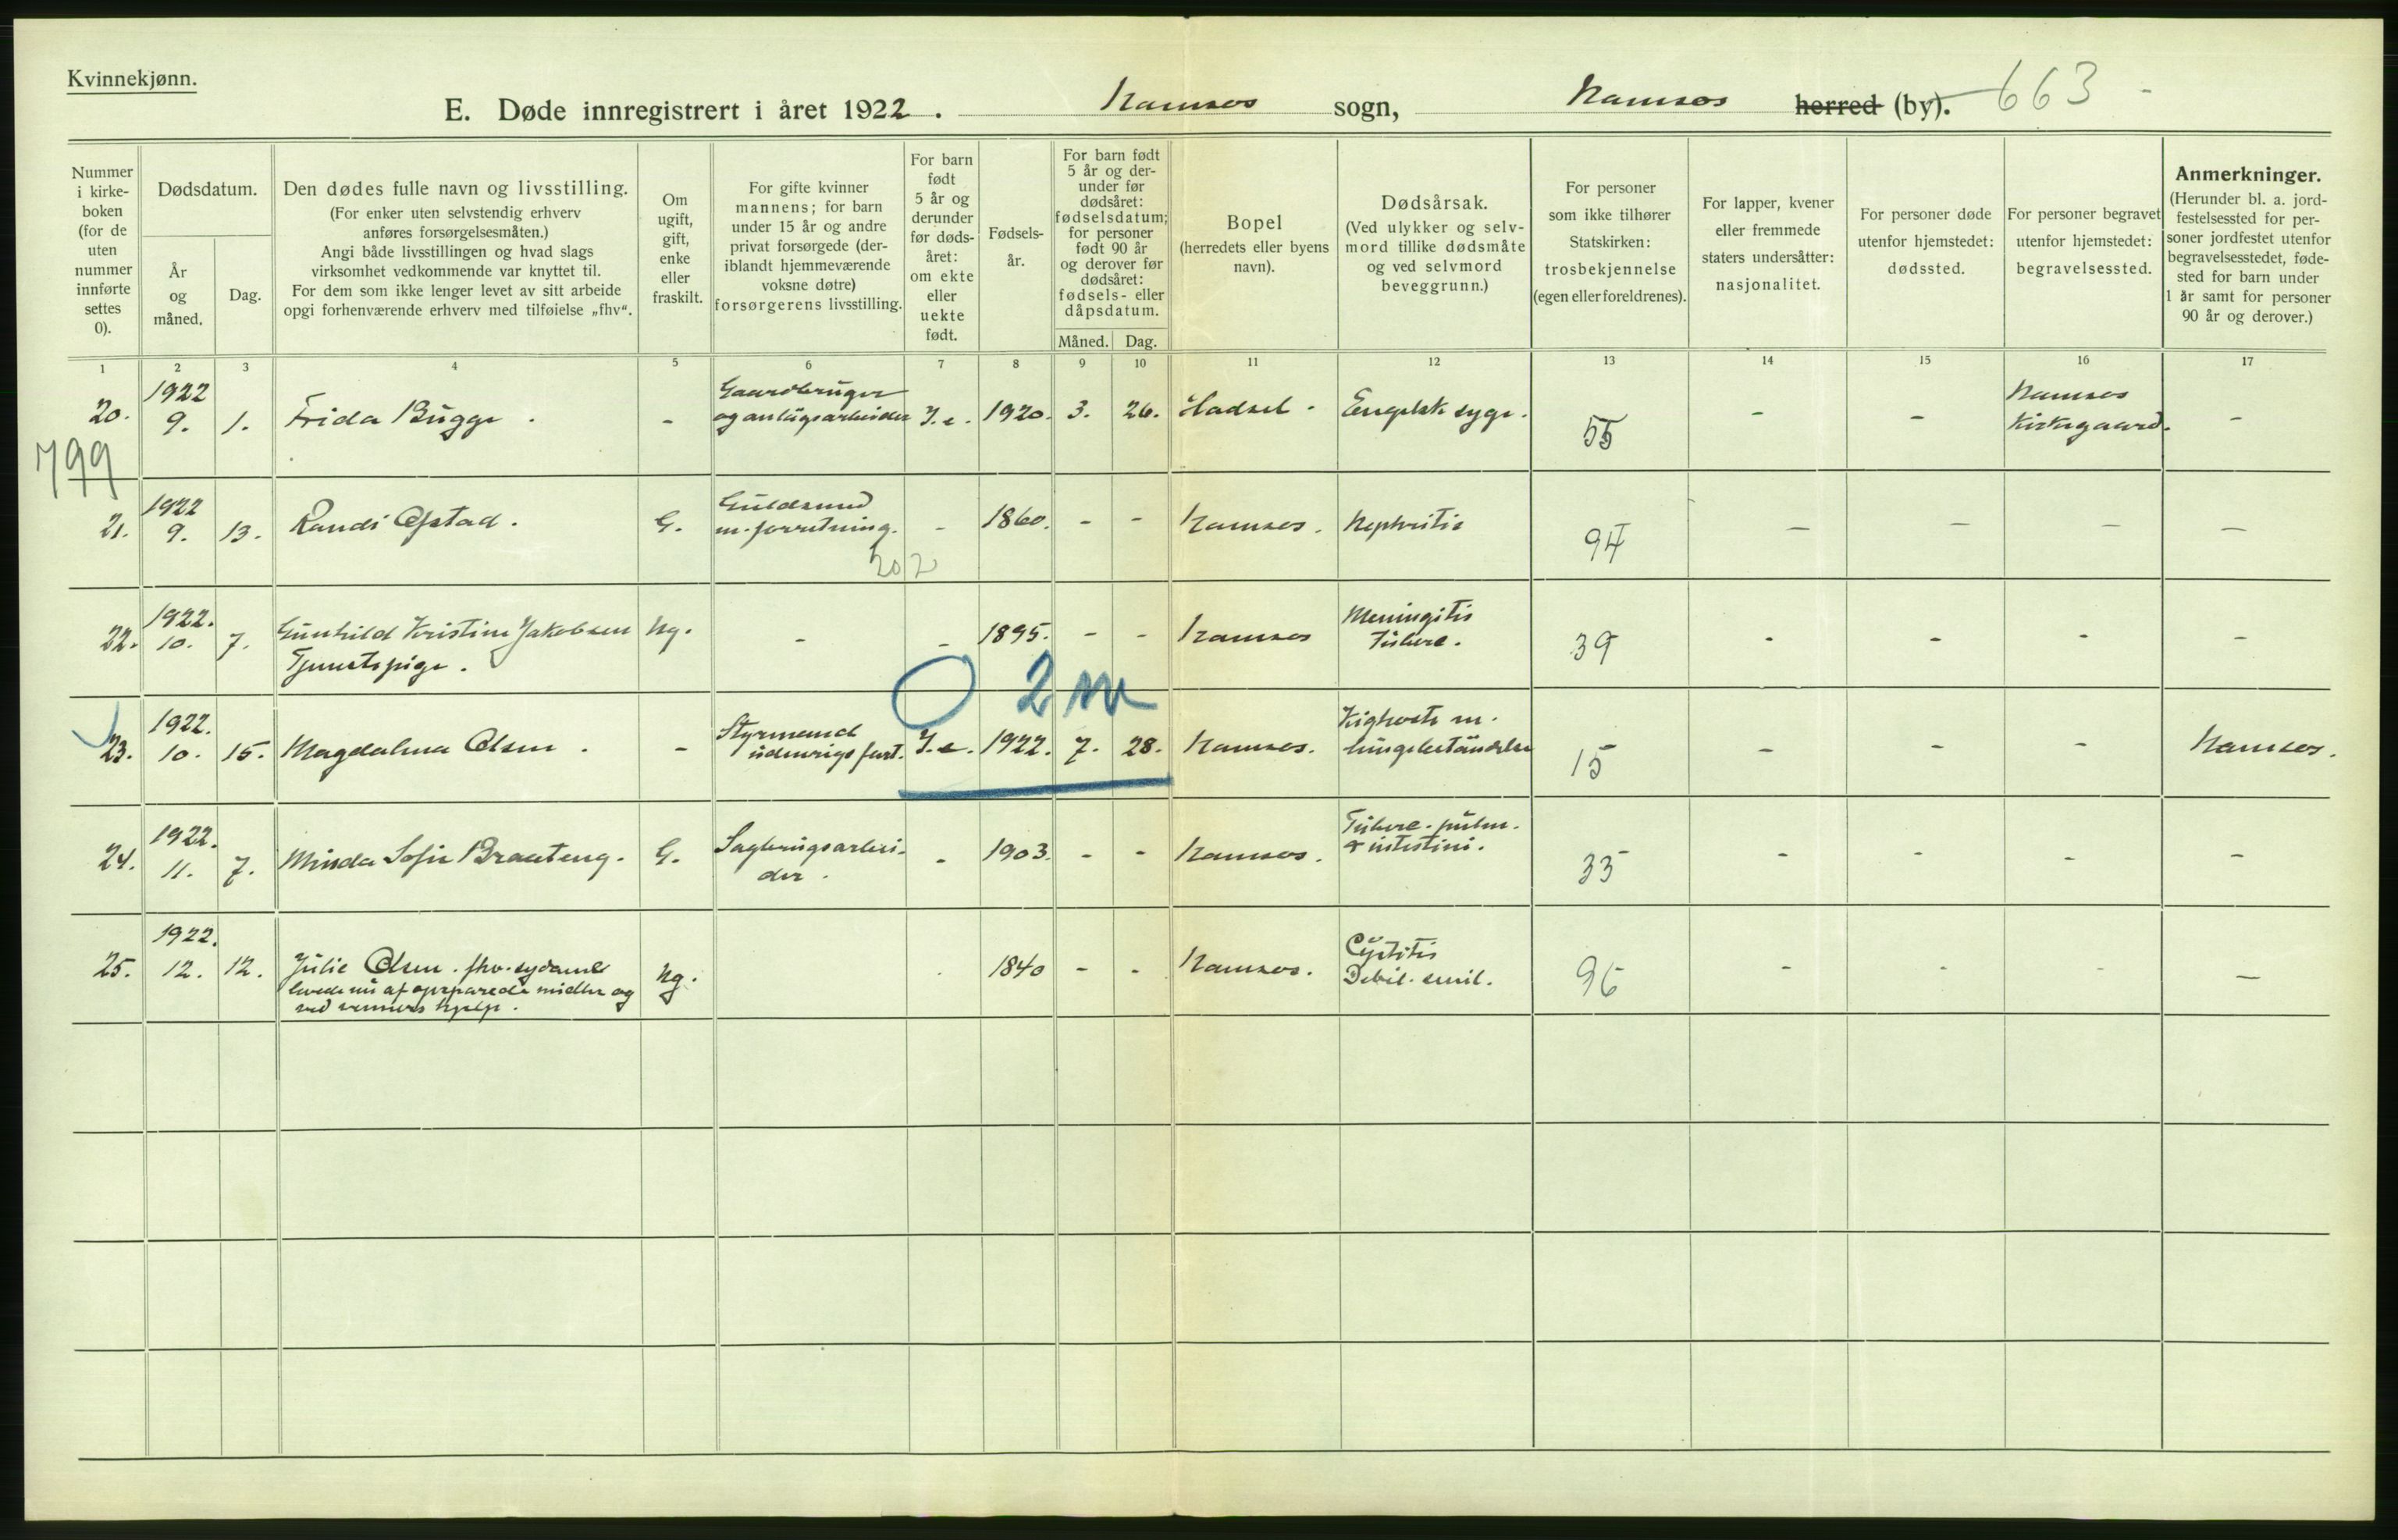 Kvinnekjønn.
E. Døde innregistrert i året 1922. Namsos sogn, Namsos herred (by). 663 -
Nummer i kirke-boken (for de uten nummer innførte settes 0).
Dødsdatum.
År og måned.
Dag.
Den dødes fulle navn og livsstilling.
(For enker uten selvstendig erhverv
anføres forsørgelsesmåten.)
Angi både livsstillingen og hvad slags
virksomhet vedkommende var knyttet til.
For dem som ikke lenger levet av sitt arbeide
opgi forhenværende erhverv med tilføielse „fhv“.
Om ugift, gift, enke eller fraskilt.
For gifte kvinner
mannens; for barn
under 15 år og andre
privat forsørgede (der-
iblandt hjemmeværende
voksne døtre)
forsørgerens livsstilling.
For barn født 5 år og derunder før døds-året: om ekte eller uekte født.
Fødsels-år.
For barn født
5 år og der-
under før
dødsåret:
fødselsdatum;
for personer
født 90 år
og derover før
dødsåret:
fødsels- eller
dåpsdatum.
Måned. Dag.
Bopel
(herredets eller byens
navn).
Dødsårsak.
(Ved ulykker og selv-
mord tillike dødsmåte
og ved selvmord
beveggrunn.)
For personer
som ikke tilhører
Statskirken:
trosbekjennelse
(egen eller foreldrenes).
For lapper, kvener
eller fremmede
staters undersåtter:
nasjonalitet.
For personer døde
utenfor hjemstedet:
dødssted.
For personer begravet
utenfor hjemstedet:
begravelsessted.
Anmerkninger.
(Herunder bl. a. jord-
festelsessted for per-
soner jordfestet utenfor
begravelsesstedet, føde-
sted for barn under
1 år samt for personer
90 år og derover.)
1 2 3 4 5 6 7 8 9 10 11 12 13 14 15 16 17
20. 1922 9. 1. Frida Bugge. - Gaardbruger og anlægsarbeider J. e. 1920. 3. 26. Hadsel. Engelsk syge. 55 - - Namsos Kirkegaard. -
799
21. 1922 9. 13. Randi Opstad. G. Guldsmed m. forretning. - 1860. - - Namsos. Nephritis 94 - - - -
202
22. 1922. 10. 7. Gunhild Kristine Jakobsen Tjenestepige. Ug. - - 1895. - - Namsos Meningitis Tuberc. 39 - - - -
O 2 m
23. 1922. 10. 15. Magdalena Olsen. - Styrmand udenrigs fart. J. e. 1922. 7. 28. Namsos. Kighoste m. lungebetændelse 15 - - - Namsos.
24. 1922. 11. 7. Minda Sofie Braateng. G. Sagbrugsarbei-der. - 1903. - - Namsos. Tuberc. pulm. & intestini. 33 - - - -
25. 1922. 12. 12. Julie Olsen. fhv. sydame
levede nu af opsparede midler og
ved venners hjelp. Ug. 1840 - - Namsos. Cystitis Debil. senil. 96 - - - -